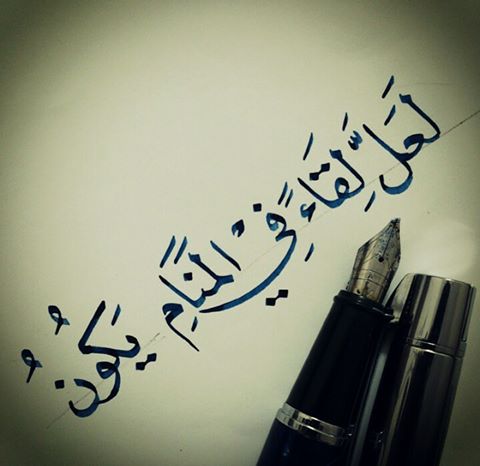 لَعَلَّ لِقَاءً فِي الْمَنَامِ يَكُونُ